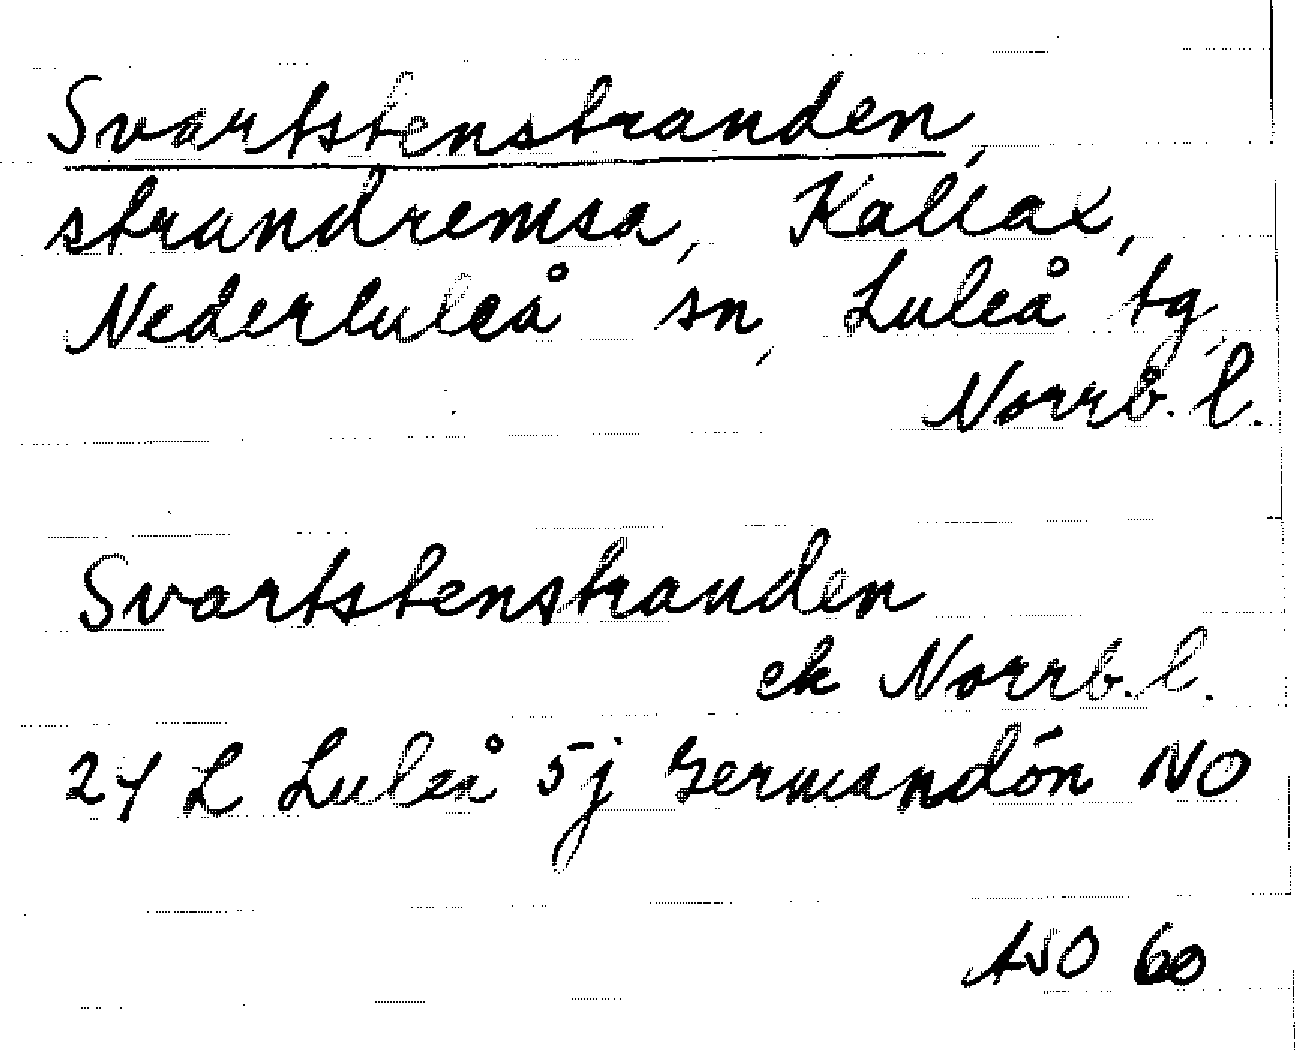 Svartstenstranden,
strandremsa, Kallax,
Nederluleå sn, Luleå tg,
Norrb. l.
Svartstenstranden
ek Norrb. l.
24 L Luleå 5j Germandön NO
AJO 60